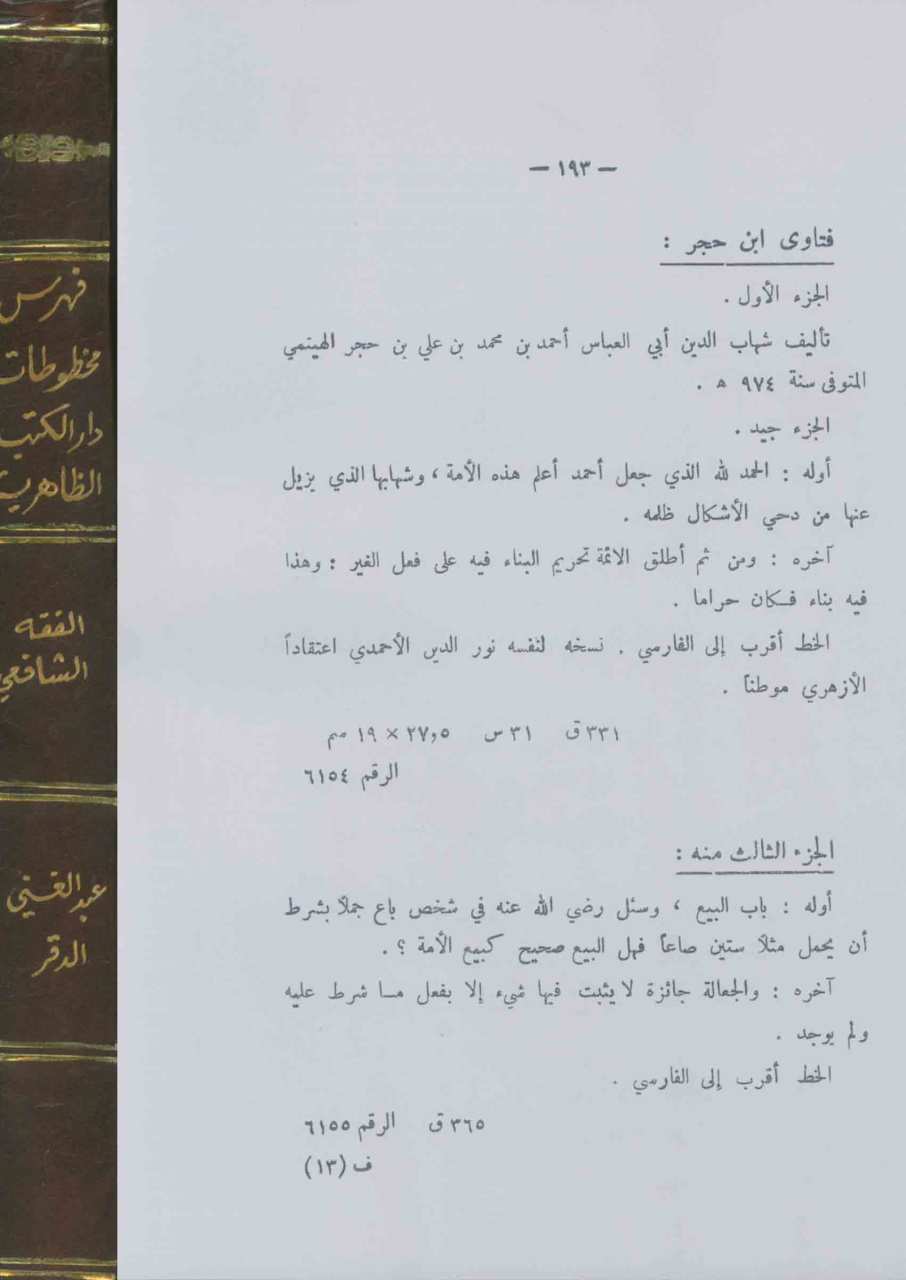 فهرس
مخطوطات
دار الكتب
الظاهرية
الفقه
الشافعي
عبد الغني
الدقر
— ١٩٣ —
فتاوى ابن حجر :
الجزء الأول .
تأليف شهاب الدين أبي العباس أحمد بن محمد بن علي بن حجر الهيتمي
المتوفى سنة ٩٧٤ هـ .
الجزء جيد .
أوله : الحمد لله الذي جعل أحمد أعلم هذه الأمة ، وشهابها الذي يزيل
عنها من دحي الأشكال ظلمه .
آخره : ومن ثم أطلق الائمة تحريم البناء فيه على فعل الغير : وهذا
فيه بناء فكان حراما .
الخط أقرب إلى الفارسي . نسخه لنفسه نور الدين الأحمدي اعتقاداً
الأزهري موطناً .
٣٣١ ق ٣١ س ٢٧,٥ × ١٩ مم
الرقم ٦١٥٤
الجزء الثالث منه :
أوله : باب البيع ، وسئل رضي الله عنه في شخص باع جملاً بشرط
أن يحمل مثلاً ستين صاعاً فهل البيع صحيح كبيع الأمة ؟ .
آخره : والجعالة جائزة لا يثبت فيها شيء إلا بفعل ما شرط عليه
ولم يوجد .
الخط أقرب إلى الفارسي .
٣٦٥ ق الرقم ٦١٥٥
ف (١٣)